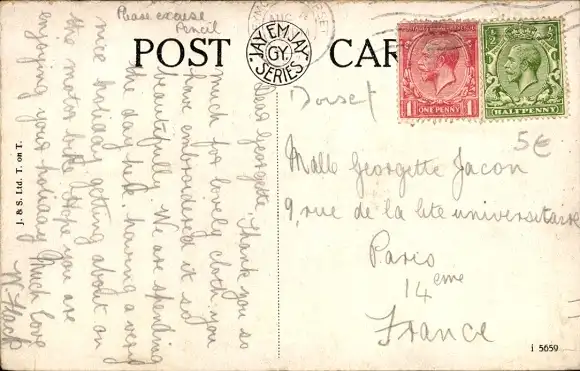 Please excuse
Pencil
POST CARD
JAY EM JAY
GY.
SERIES
ONE PENNY
HALFPENNY
Dear Georgette. Thank you so
much for lovely cloth you
have embroidered it so
beautifully. We are spending
the day here. having a very
nice holiday getting about on
the motor bike Hope you are
enjoying your holiday
Much love
Dorset
5€
Mlle Georgette Jacon
9, rue de la cite universitaire
Paris
14 eme
France
J. & S. Ltd. T. on T.
i 5659